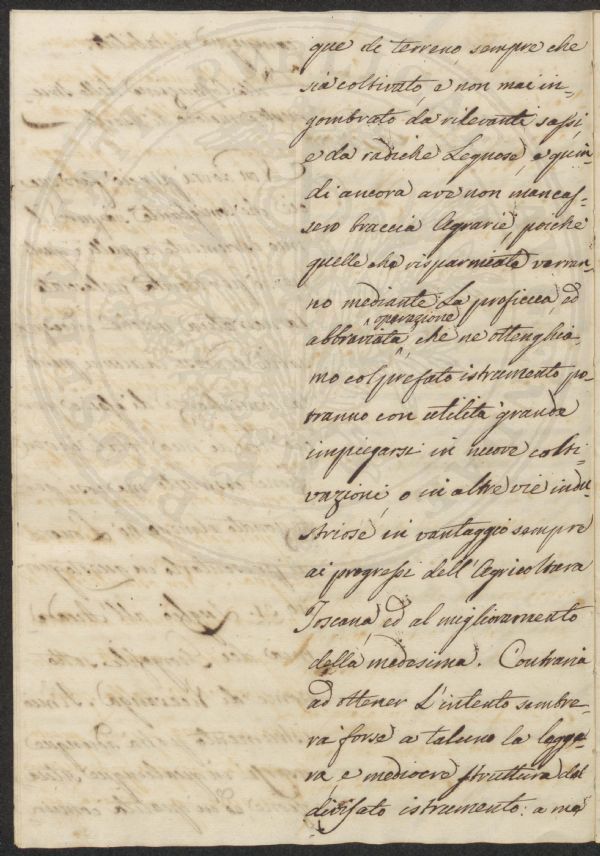 que di terreno sempre che
sia coltivato, e non mai in-
gombrato da rilevanti sassi
e da radiche Legnose, e quin-
di ancora ave non mancas-
sero braccia Agrarie, poiche
quelle che risparmiate verran-
no mediante La proficea, ed
operazione
abbreviata, che ne ottenghia-
mo col prefato istrumento po-
tranno con utilità grande
impiegarsi in nuove colti-
vazioni, o in altre vie indu-
striose in vantaggio sempre
ai progressi dell'Agricoltura
Toscana, ed al miglioramento
della medesima. Contraria
ad ottener L'intento sembre-
rà forse a taluno la legge-
ra, e mediocre struttura del
divisato istrumento: a me